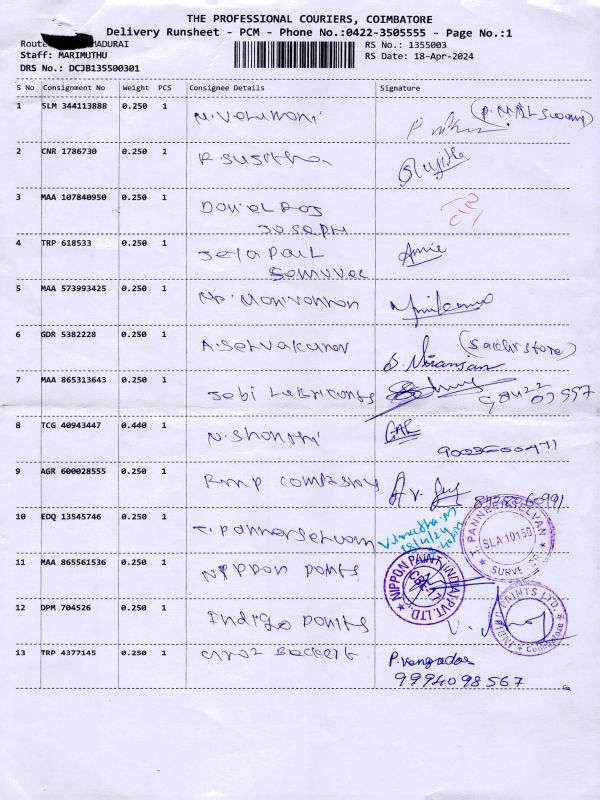 THE PROFESSIONAL COURIERS, COIMBATORE
Delivery Runsheet - PCM - Phone No.:0422-3505555 - Page No.:1
Route: MADURAI RS No.: 1355003
Staff: MARIMUTHU RS Date: 18-Apr-2024
DRS No.: DCJB135500301
S No Consignment No Weight PCS Consignee Details Signature
1 SLM 344113888 0.250 1 N. Velumoni
2 CNR 1786730 0.250 1 R. Susitha Sujitha
3 MAA 107840950 0.250 1 Daniel Raj
Joseph
4 TRP 618533 0.250 1 Jeya Paul
Samuvel
5 MAA 573993425 0.250 1 Mr. Manivannan
6 GDR 5382228 0.250 1 A. Selvakumar (Sakthi store)
S. Niranjan
7 MAA 865313643 0.250 1 Jebi Lubricants
8 TCG 40943447 0.440 1 N. Shanthi
9 AGR 600028555 0.250 1 RMP
10 EDQ 13545746 0.250 1 T. Pannerselvam
18/4/24
T. PANNERSELVAN
SLA 10150
11 MAA 865561536 0.250 1 Nippon paints
NIPPON PAINT (INDIA) PVT. LTD
12 DPM 704526 0.250 1 Indigo paints
INDIGO PAINTS LTD. Coimbatore
13 TRP 4377145 0.250 1 P. Vengadas
9994098567